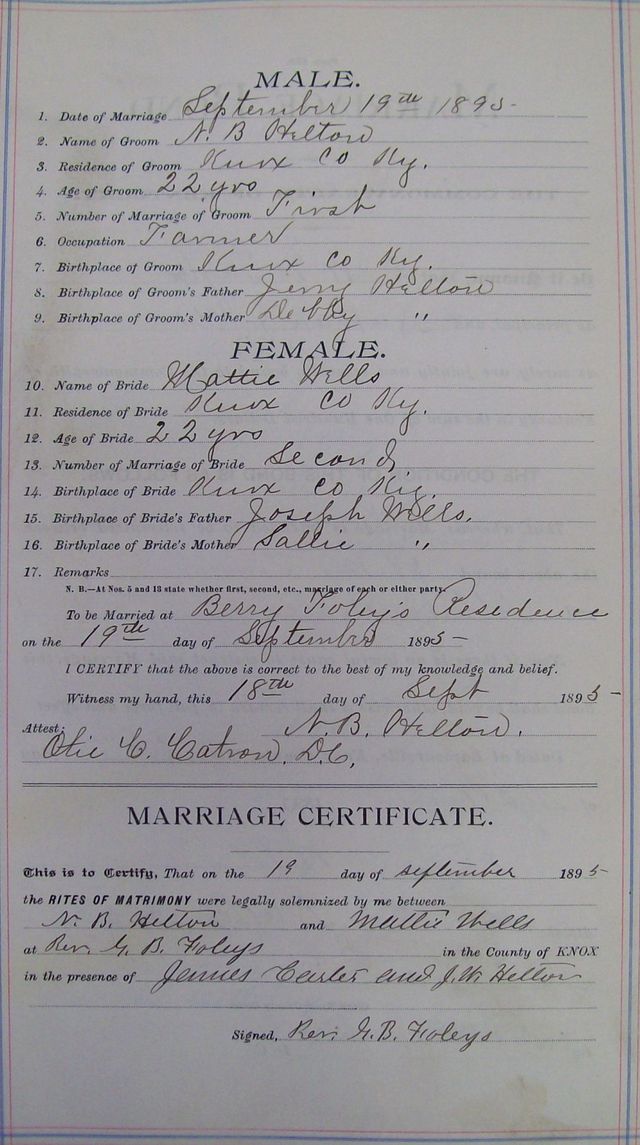 MALE.
1. Date of Marriage September 19th 1895
2. Name of Groom N. B Helton
3. Residence of Groom Knox Co Ky.
4. Age of Groom 22 yrs
5. Number of Marriage of Groom First
6. Occupation Farmer
7. Birthplace of Groom Knox Co Ky.
8. Birthplace of Groom's Father Jerry Helton
9. Birthplace of Groom's Mother Debby "
FEMALE.
10. Name of Bride Mattie Wells
11. Residence of Bride Knox Co Ky.
12. Age of Bride 22 yrs
13. Number of Marriage of Bride Second
14. Birthplace of Bride Knox Co Ky.
15. Birthplace of Bride's Father Joseph Wells.
16. Birthplace of Bride's Mother Sallie "
17. Remarks
N. B.—At Nos. 5 and 13 state whether first, second, etc., marriage of each or either party.
To be Married at Berry Foley's Residence
on the 19th day of September 1895
I CERTIFY that the above is correct to the best of my knowledge and belief.
Witness my hand, this 18th day of Sept 1895
N. B. Helton.
Attest:
Otic C. Catron. D.C.
MARRIAGE CERTIFICATE.
This is to Certify, That on the 19 day of september 1895
the RITES OF MATRIMONY were legally solemnized by me between
N. B. Helton and Mattie Wells
at Rev. G. B. Foleys in the County of KNOX
in the presence of James Carter and J. W. Helton
Signed, Rev. G. B. Foleys